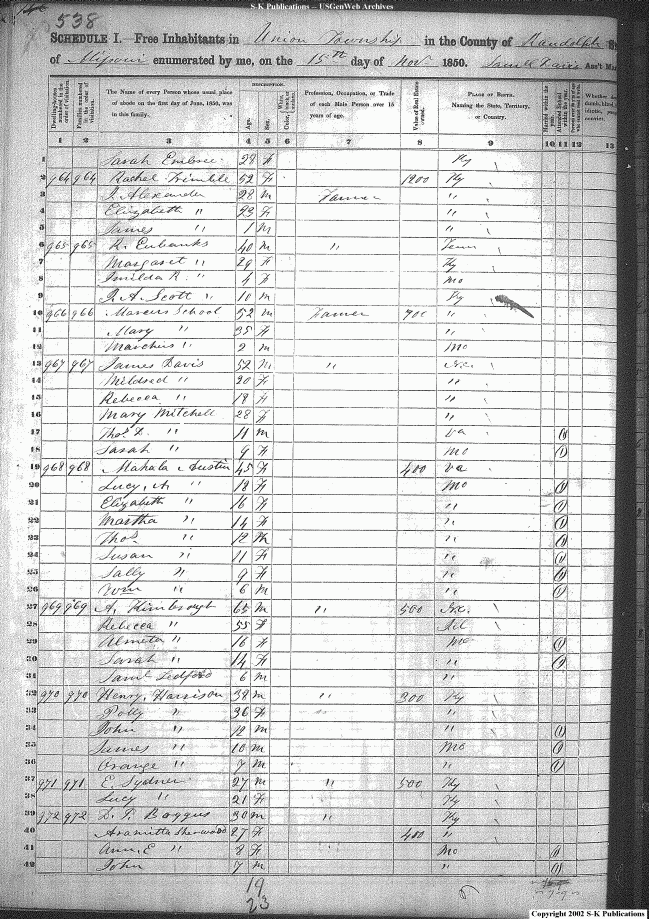 S-K Publications – USGenWeb Archives
538
SCHEDULE I. Free Inhabitants in Union Township in the County of Randolph
of Missouri enumerated by me, on the 15th day of Nov. 1850. Ass't
Dwelling-houses numbered in the order of visitation.
Families numbered in the order of visitation.
The Name of every Person whose usual place of abode on the first day of June, 1850, was in this family.
DESCRIPTION.
Age.
Sex.
Color
Profession, Occupation, or Trade of each Male Person over 15 years of age.
Value of Real Estate owned.
PLACE OF BIRTH.
Naming the State, Territory, or Country.
Married within the year.
Whether
1 2 3 4 5 6 7 8 9 10 11 12 13
1 Sarah Embree 28 F Ky
2 964 964 Rachel Trimble 52 F 1200 Ky
3 J. Alexander 28 M Farmer "
4 Elizabeth " 23 F "
5 James " 1 M "
6 965 965 K. Eubanks 40 M " Tenn
7 Margaret " 29 F Ky
8 " 4 F Mo
9 J. A. Scott " 10 M Ky
10 966 966 Marcus School 52 M Farmer 700 "
11 Mary " 35 F "
12 " 2 M Mo
13 967 967 James Davis 52 M " N.C.
14 Mildred " 20 F "
15 Rebecca " 18 F "
16 Mary Mitchell 28 F "
17 Thos. " 11 M Va 1
18 Sarah " 9 F Mo 1
19 968 968 Mahala Austin 45 F 400 Va
20 Lucy, A " 18 F Mo 1
21 Elizabeth " 16 F " 1
22 Martha " 14 F " 1
23 Thos " 12 M " 1
24 Susan " 11 F " 1
25 Sally " 9 F " 1
26 Wm " 6 M " 1
27 969 969 A. Kimbrough 65 M " 500 N.C.
28 Rebecca " 55 F
29 Almeta " 16 F Mo 1
30 Sarah " 14 F " 1
31 Saml Ledford 6 M "
32 970 970 Henry, Harrison 38 M " 300 Ky
33 Polly " 36 F "
34 John " 12 M " 1
35 James " 10 M Mo 1
36 Orange " 7 M " 1
37 971 971 E. Sydner 27 M " 500 Ky
38 Lucy " 21 F Ky
39 972 972 D. T. Boggus 30 M " Ky
40 Araminta Sherwood 27 F 400 "
41 Ann, E " 8 F Mo 1
42 John " 7 M " 1
19
23
Copyright 2002 S-K Publications